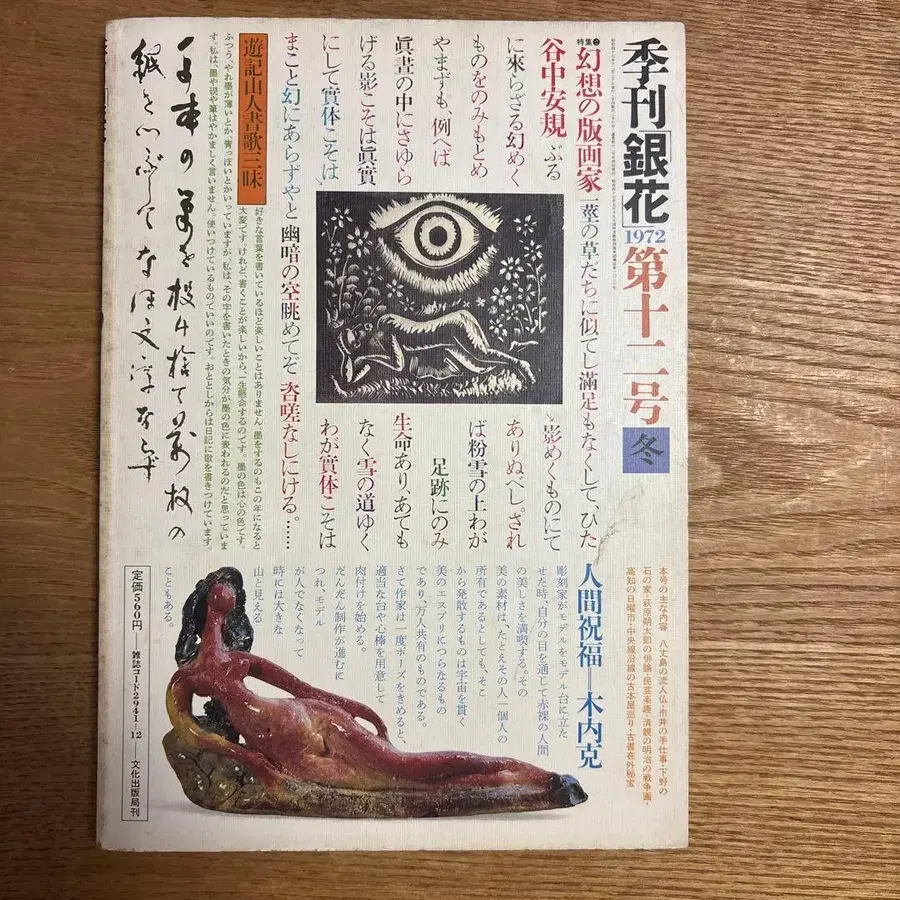 季刊「銀花」1972第十二号 冬
特集❷ 幻想の版画家 一莖の草だちに似てし滿足もなくして、ひた
谷中安規 ぶる
に來らざる幻めく
ものをのみもとめ
やまずも、例へば
眞晝の中にさゆら
げる影こそは眞實
にして實体こそは、
影めくものにて
ありぬべし。され
ば粉雪の上わが
足跡にのみ
生命あり、あても
なく雪の道ゆく
わが實体こそは
まこと幻にあらずやと 幽暗の空眺めてぞ 咨嗟なしにける。……
遊記山人書歌三昧
好きな言葉を書いているほど楽しいことはありません。墨をするのもこの年になると
大変です。けれど、書くことが楽しいから、一生懸命するのです。墨の色は心の色です。
ふつう、やれ墨が薄いとか、青っぽいとかいっていますが、私は、その字を書いたときの気分が墨の色に表われるのだと思っていま
す。私は、墨や硯や筆はやかましく言いません。使いつけているものでいいのです。おととしからは日記に歌を書きつけています。
千本の筆を投げ捨て萬枚の
紙をつぶしてなほ文字ならず
本号の主な内容 八丈島の流人仏・市井の手仕事・下野の
石の家・萩原朔太郎の俳論・民芸楽趣・清親の明治の戦争画・
高知の日曜市・中央線沿線の古本屋巡り・古書在外秘宝
人間祝福―木内克
彫刻家がモデルをモデル台に立た
せた時、自分の目を通して赤裸の人間
の美しさを満喫する。その
美の素材は、たとえその人一個人の
所有であるとしても、そこ
から発散するものは宇宙を貫く
美のエスプリにつらなるもの
であり、万人共有のものである。
さて作家は一度ポーズをきめると、
適当な台や心棒を用意して
肉付けを始める。
だんだん制作が進むに
つれ、モデル
が人でなくなって
時には大きな
山と見える
こともある。
定価560円―雑誌コード2941-12―文化出版局刊